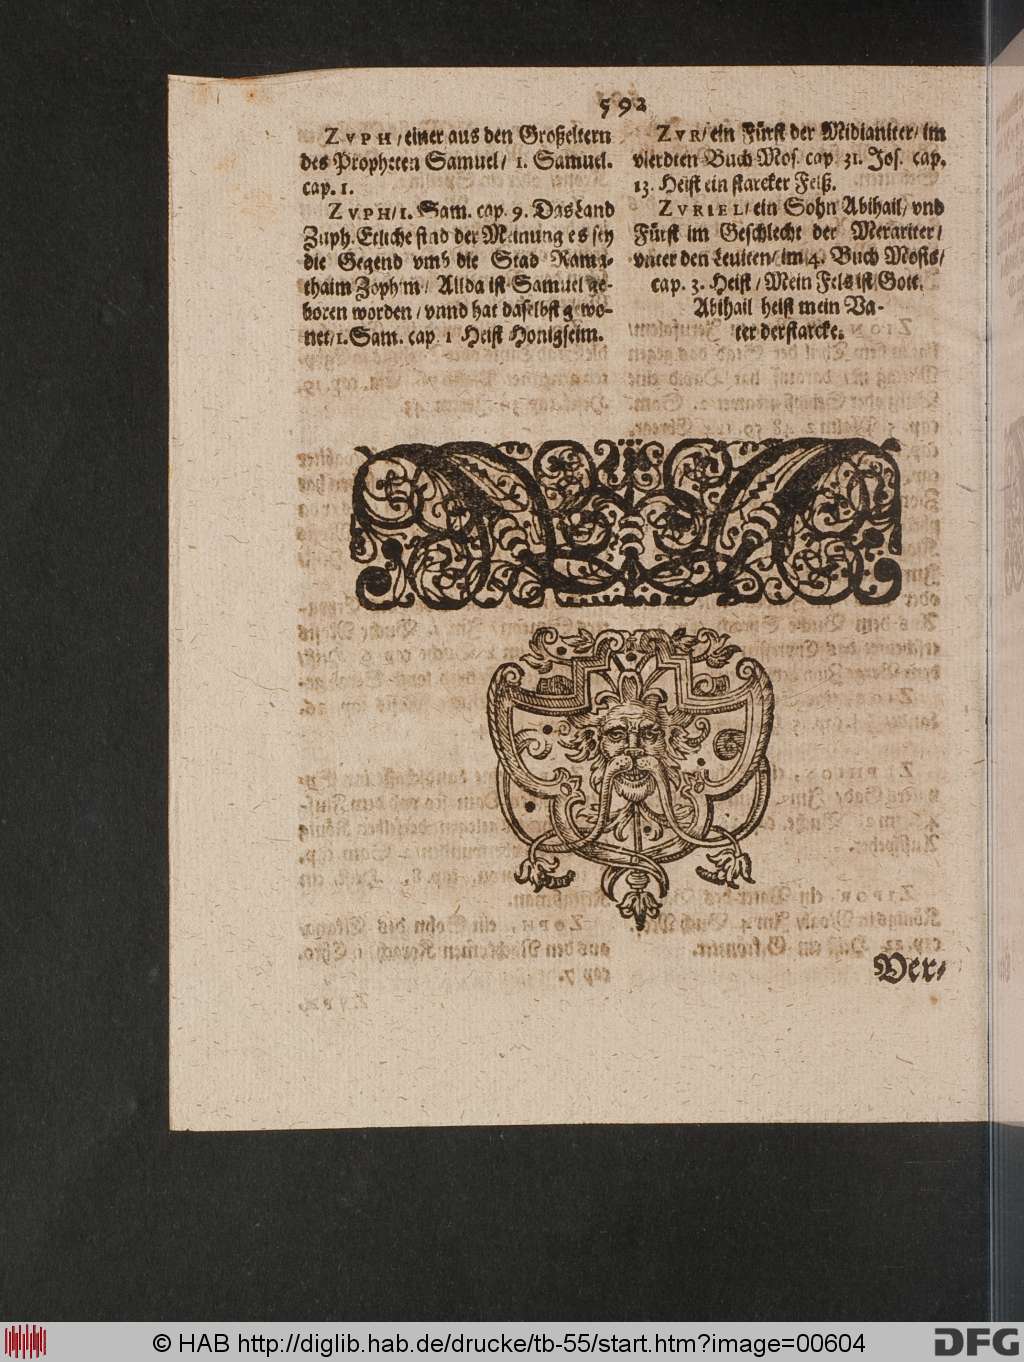 592
ZVPH / einer aus den Großeltern
des Propheten Samuel / 1. Samuel.
cap. 1.
ZVPH / 1. Sam. cap. 9. Das Land
Zuph. Etliche sind der Meinung es sey
die Gegend vmb die Stad Rama-
thaim Zophim / Allda ist Samuel ge-
boren worden / vnnd hat daselbst gewo-
net / 1. Sam. cap. 1 Heist Honigseim.
ZVR / ein Fürst der Midianiter / im
vierdten Buch Mos. cap. 31. Jos. cap.
13. Heist ein starcker Felß.
ZVRIEL / ein Sohn Abihail / vnd
Fürst im Geschlecht der Merariter /
vnter den Leuiten / im 4. Buch Mosis /
cap. 3. Heist / Mein Fels ist Gott.
Abihail heist mein Va-
ter der starcke.
Ver-
© HAB http://diglib.hab.de/drucke/tb-55/start.htm?image=00604
DFG